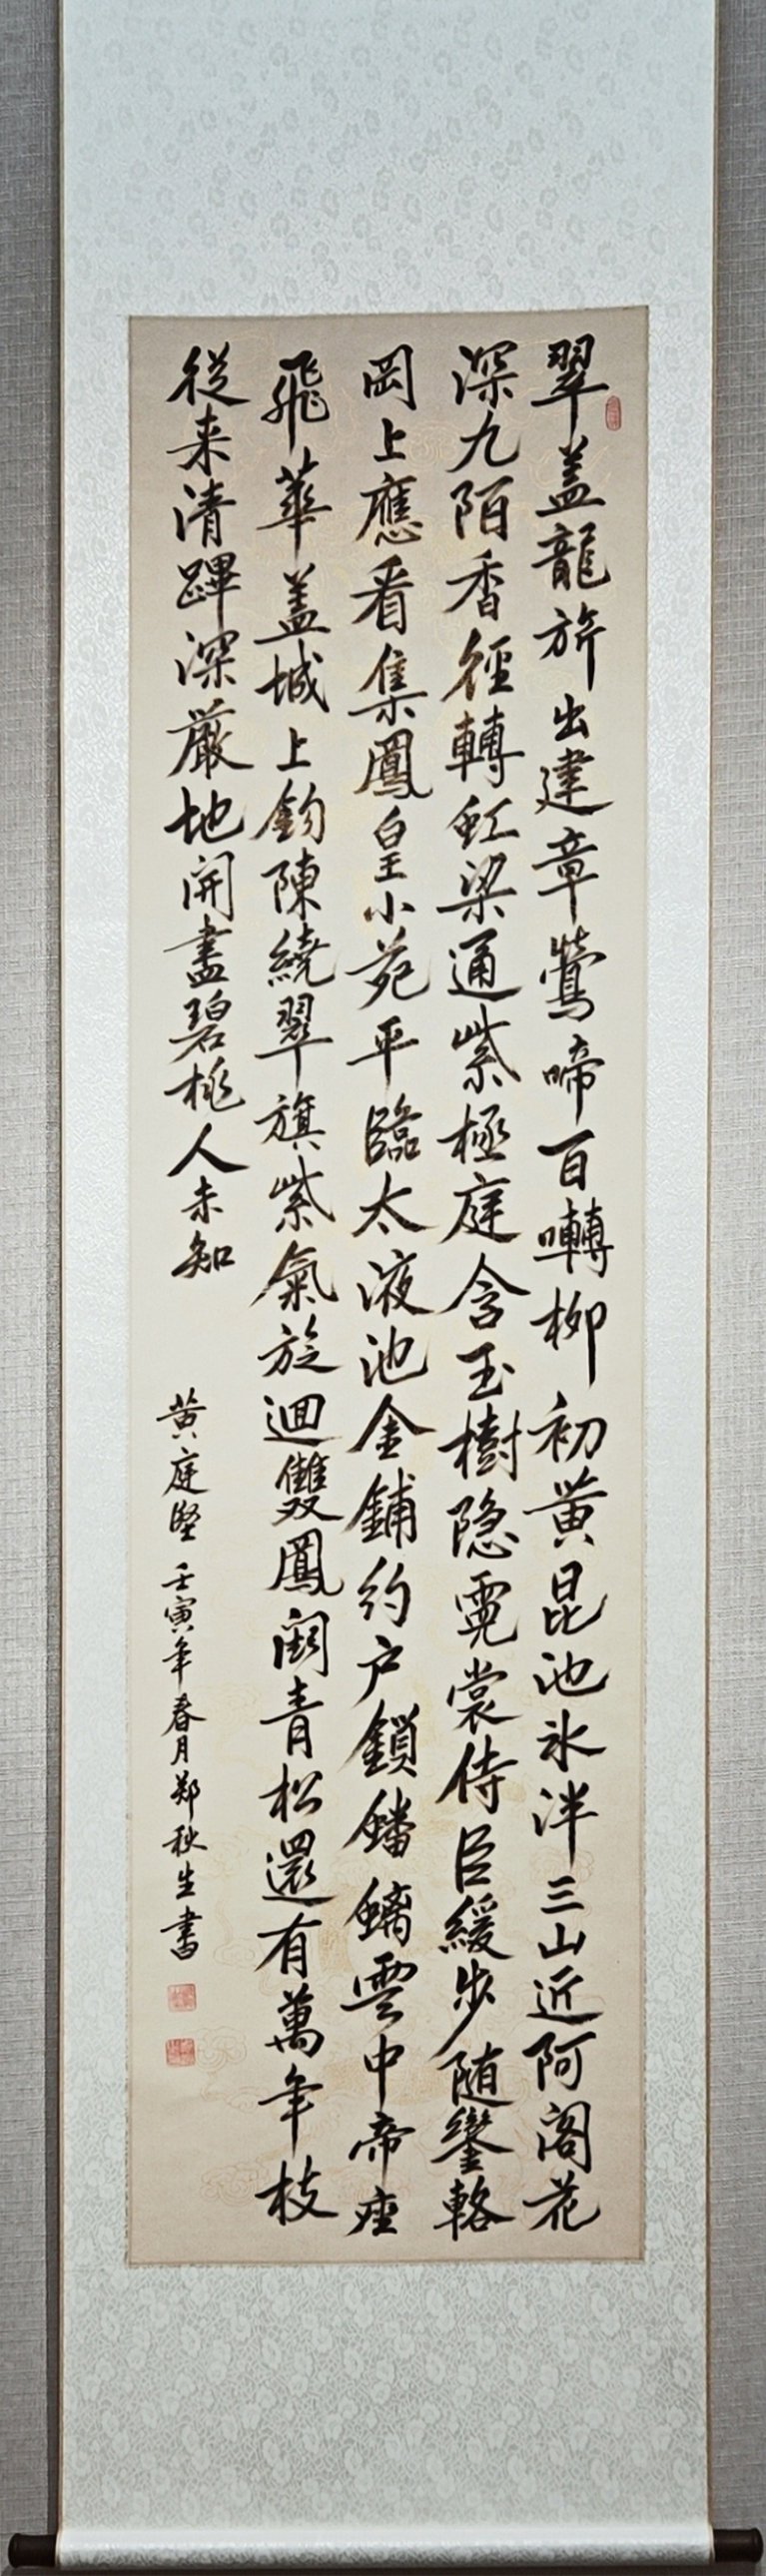 翠盖龍旂出建章鶯啼百囀柳初黄昆池氷泮三山近阿阁花
深九陌香徑轉虹梁通紫極庭含玉樹隐霓裳侍臣緩步随鑾輅
岡上應看集鳳皇小苑平臨太液池金鋪約户鎖蟠螭雲中帝座
飛華盖城上鈎陳繞翠旗紫氣旋迴雙鳳闕青松還有萬年枝
從来清蹕深嚴地開盡碧桃人未知
黄庭堅 壬寅年春月郑秋生書